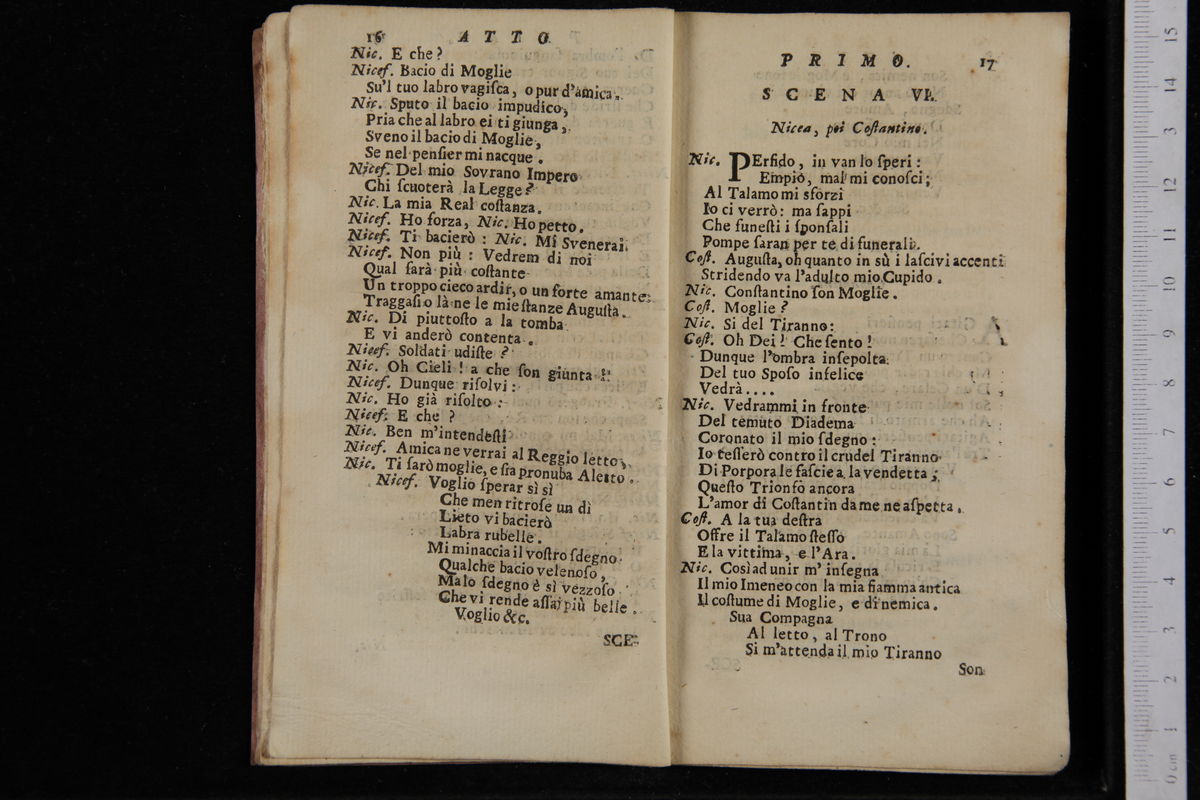 16 ATTO
Nic. E che?
Nicef. Bacio di Moglie
Su'l tuo labro vagiſca, o pur d'amica.
Nic. Sputo il bacio impudico,
Pria che al labro ei ti giunga,
Sveno il bacio di Moglie,
Se nel penſier mi nacque.
Nicef. Del mio Sovrano Impero
Chi ſcuoterà la Legge?
Nic. La mia Real coſtanza.
Nicef. Ho forza, Nic. Ho petto.
Nicef. Ti bacierò: Nic. Mi Svenerai.
Nicef. Non più: Vedrem di noi
Qual ſarà più coſtante
Un troppo cieco ardir, o un forte amante:
Traggaſi o là ne le mie ſtanze Auguſta.
Nic. Di piuttoſto a la tomba
E vi anderò contenta.
Nicef. Soldati udiſte?
Nic. Oh Cieli! a che ſon giunta!
Nicef. Dunque riſolvi:
Nic. Ho già riſolto:
Nicef. E che?
Nic. Ben m'intendeſti
Nicef. Amica ne verrai al Reggio letto,
Nic. Ti ſarò moglie, e ſia pronuba Aletto.
Nicef. Voglio ſperar sì sì
Che men ritroſe un dì
Lieto vi bacierò
Labra rubelle.
Mi minaccia il voſtro ſdegno
Qualche bacio velenoſo,
Ma lo ſdegno è sì vezzoſo
Che vi rende aſſai più belle.
Voglio &c.
SCE-
PRIMO. 17
SCENA VI.
Nicea, poi Coſtantino.
Nic. PErfido, in van lo ſperi:
Empio, mal mi conoſci;
Al Talamo mi sforzi
Io ci verrò: ma ſappi
Che funeſti i ſponſali
Pompe ſaran per te di funerali.
Coſt. Auguſta, oh quanto in sù i laſcivi accenti
Stridendo va l'adulto mio Cupido.
Nic. Conſtantino ſon Moglie.
Coſt. Moglie?
Nic. Si del Tiranno:
Coſt. Oh Dei! Che ſento!
Dunque l'ombra inſepolta
Del tuo Spoſo infelice
Vedrà....
Nic. Vedrammi in fronte
Del temuto Diadema
Coronato il mio ſdegno:
Io teſſerò contro il crudel Tiranno
Di Porpora le faſcie a la vendetta;
Queſto Trionfo ancora
L'amor di Coſtantin da me ne aſpetta.
Coſt. A la tua deſtra
Offre il Talamo ſteſſo
E la vittima, e l'Ara.
Nic. Così ad unir m'inſegna
Il mio Imeneo con la mia fiamma antica
Il coſtume di Moglie, e di nemica.
Sua Compagna
Al letto, al Trono
Si m'attenda il mio Tiranno
Son